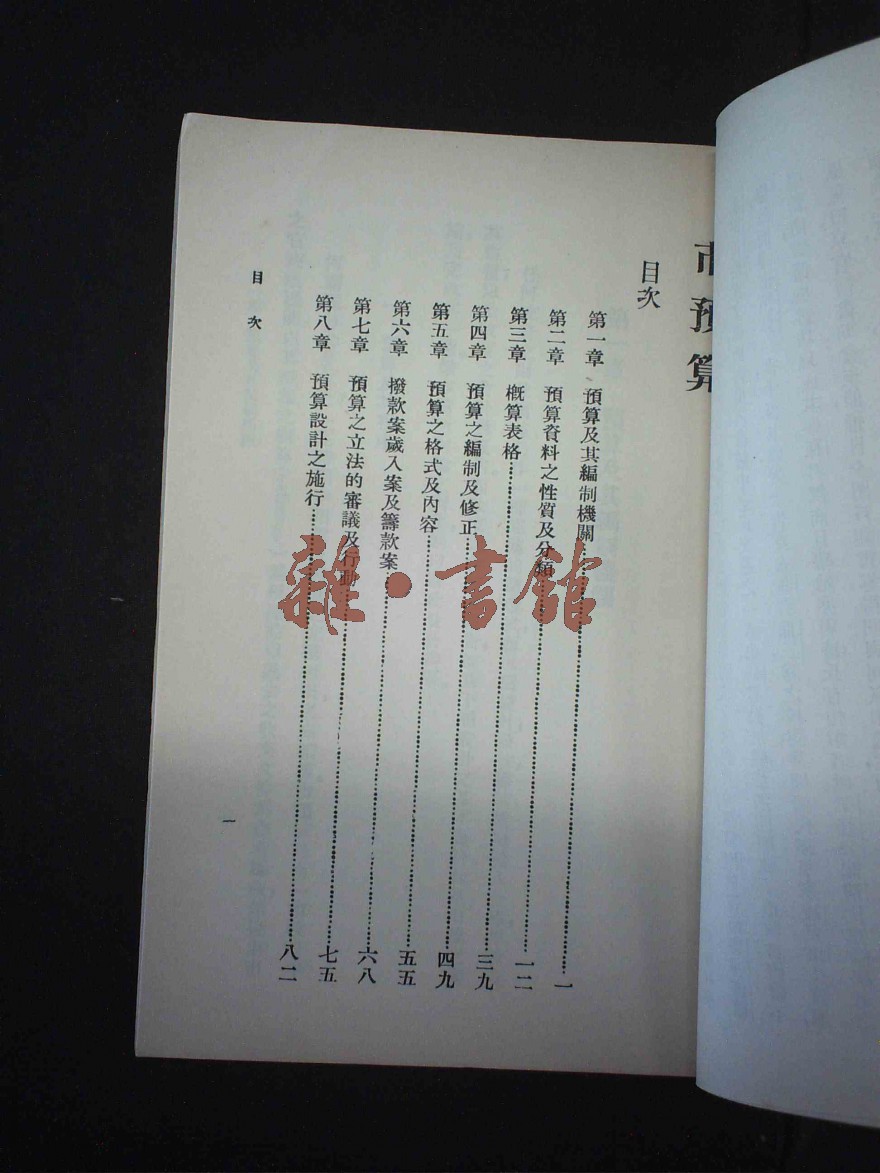 市預算
目次
第一章 預算及其編制機關……一
第二章 預算資料之性質及分類……一二
第三章 概算表格……三九
第四章 預算之編制及修正……四九
第五章 預算之格式及內容……五五
第六章 撥款案歲入案及籌款案……六八
第七章 預算之立法的審議及行動……七五
第八章 預算設計之施行……八二
目次
一
雜·書館